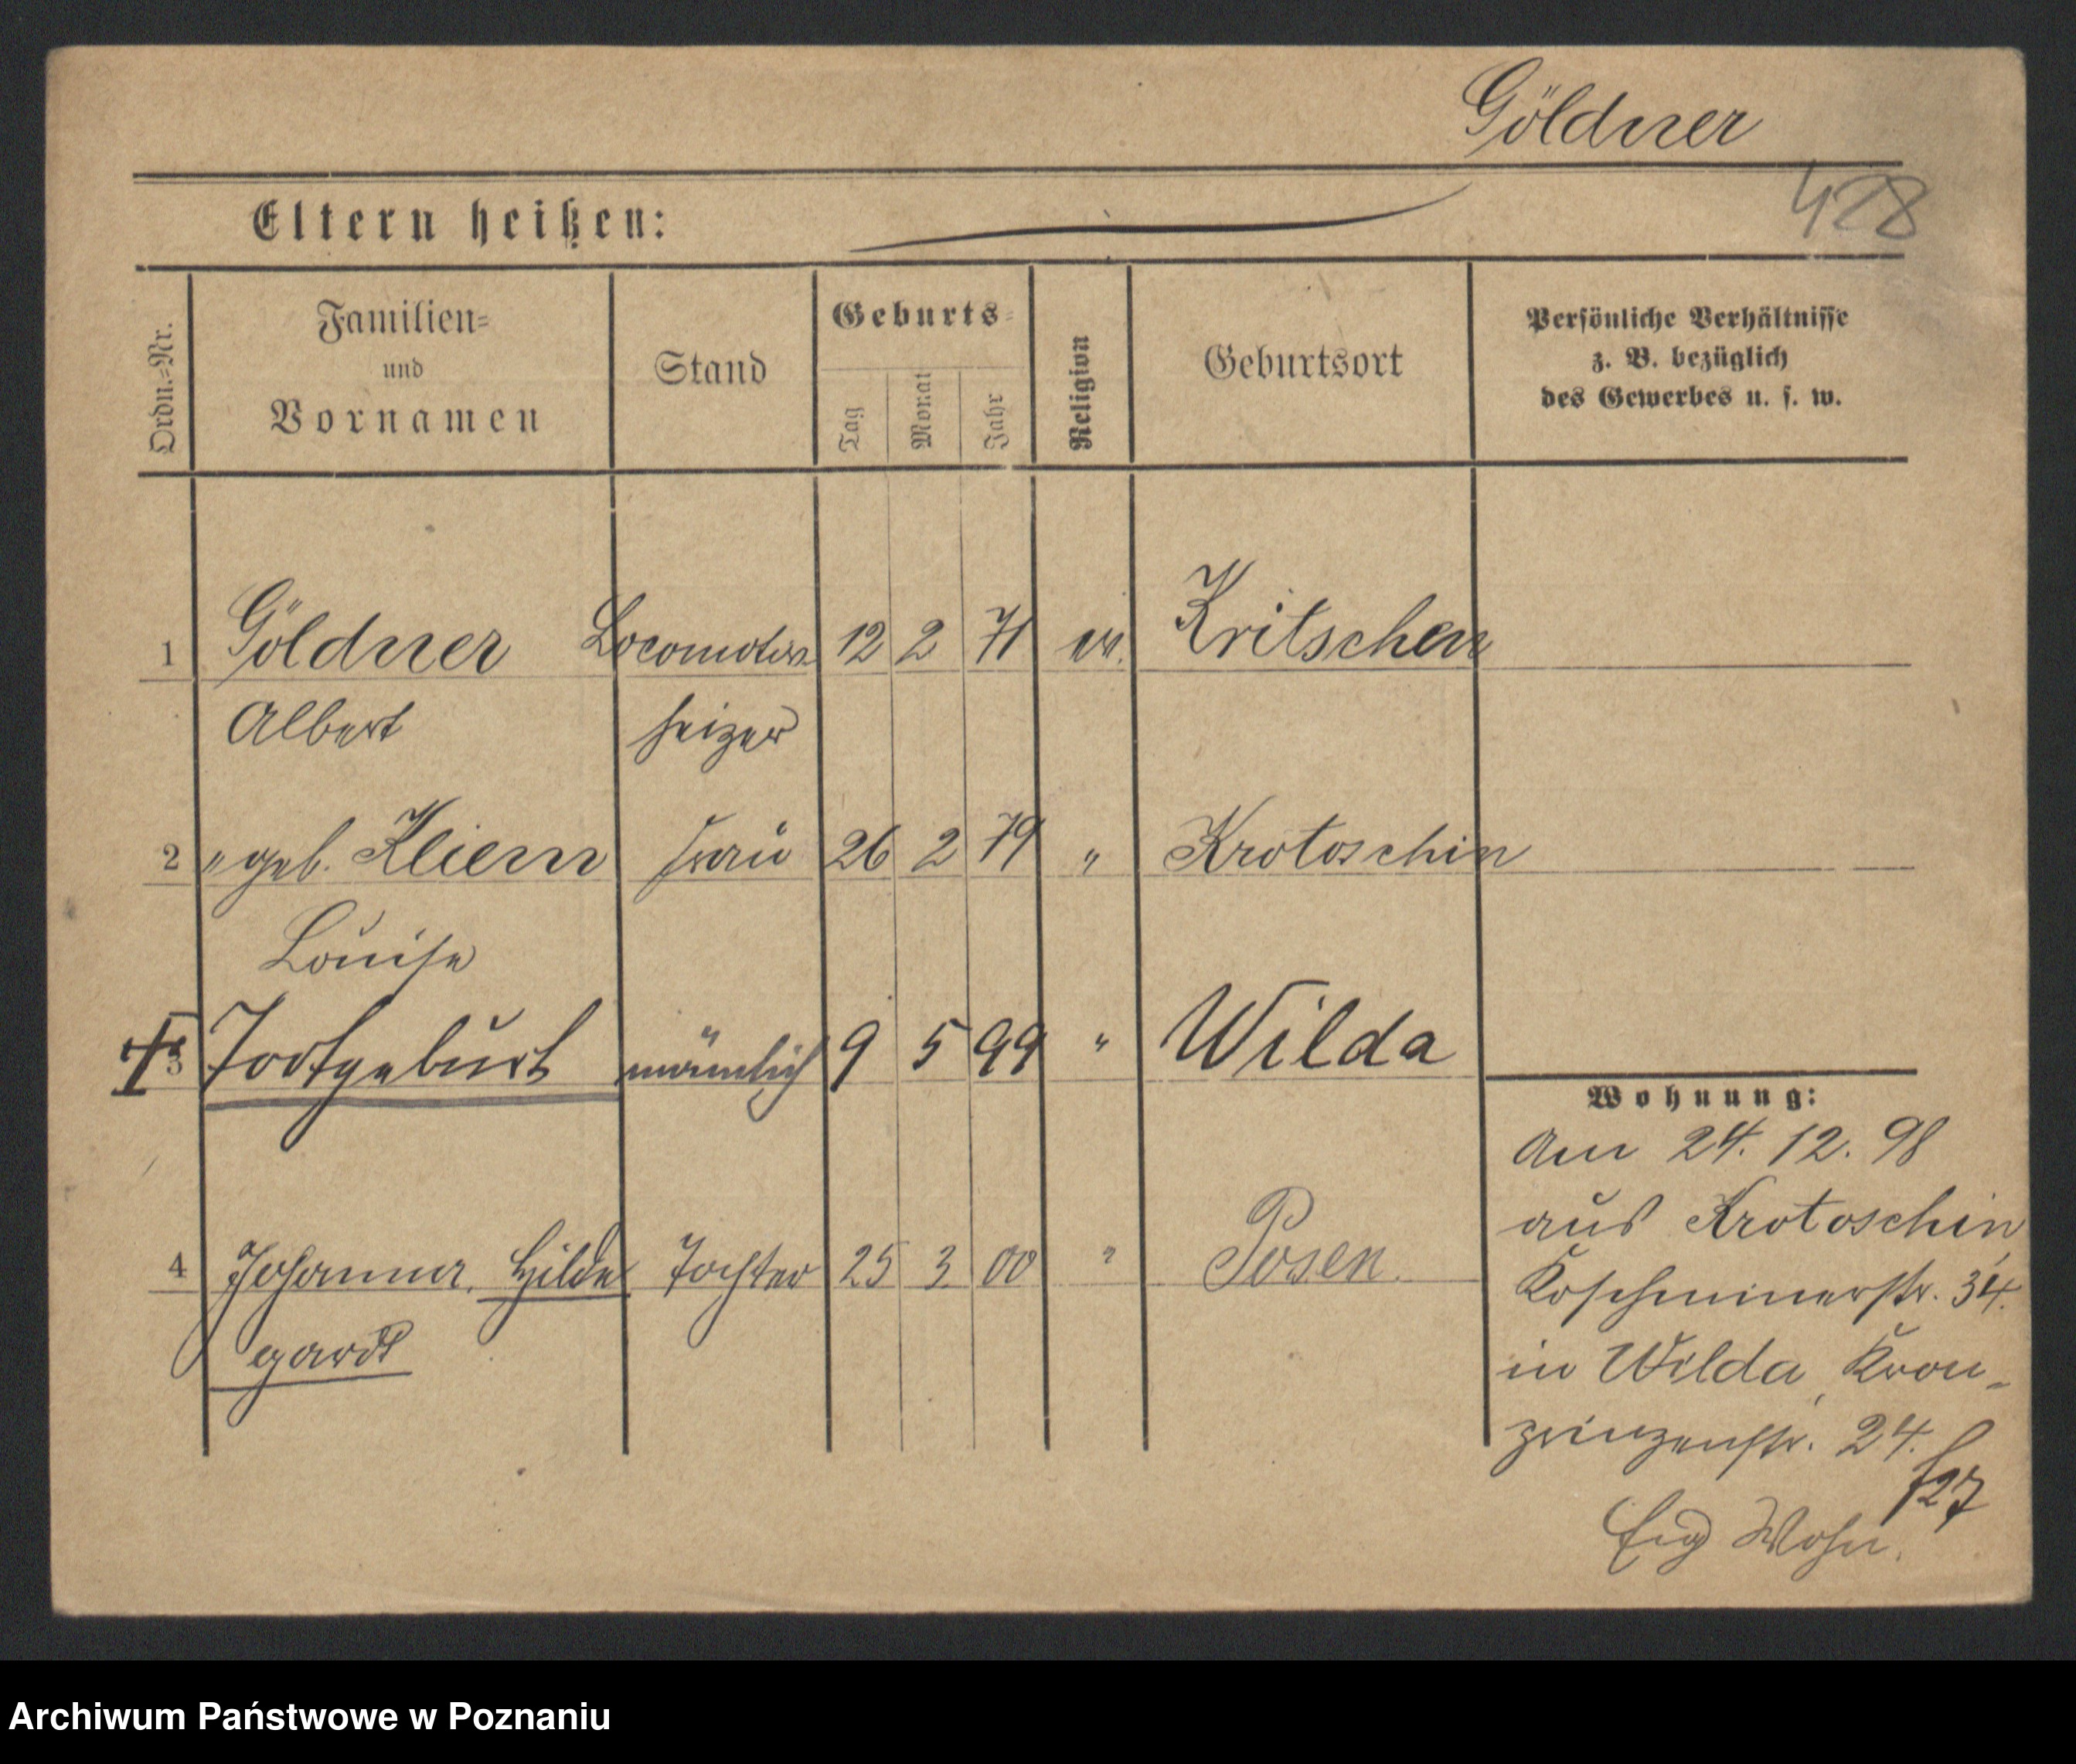 Göldner
428
Eltern heißen:
Ordn.=Nr.
Familien=
und
Vornamen
Stand
Geburts=
Tag
Monat
Jahr
Religion
Geburtsort
Persönliche Verhältnisse
z. B. bezüglich
des Gewerbes u. s. w.
1 Göldner Locomotiv 12 2 71 ev. Kritschen
Albert heizer
2 " geb. Kliem Frau 26 2 79 " Krotoschin
Louise
3 Todtgeburt männlich 9 5 99 " Wilda
Wohnung:
Am 24. 12. 98
aus Krotoschin,
Koschminerstr. 34.
in Wilda, Kron-
prinzenstr. 24.
4 Johanna, Hilde Tochter 25 3 00 " Posen.
gardt
f27
Eig Wohn.
Archiwum Państwowe w Poznaniu